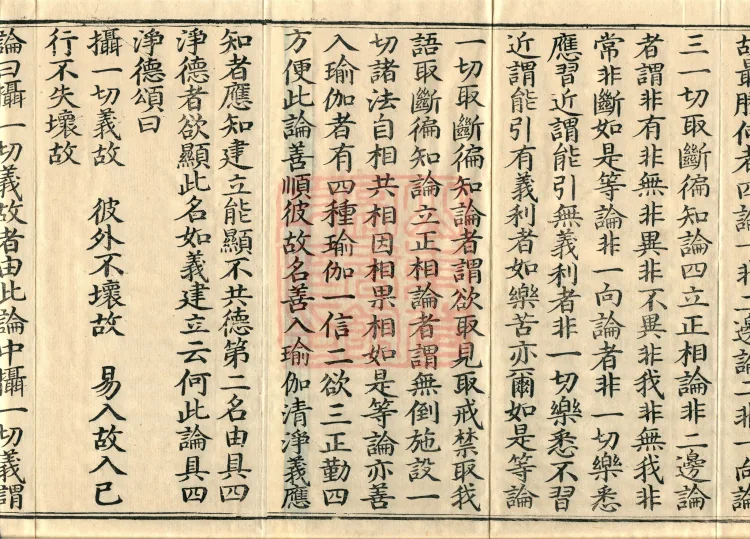 故最勝依者四論一非二邊論二非一向論
三一切取斷徧知論四立正相論非二邊論
者謂非有非無非異非不異非我非無我非
常非斷如是等論非一向論者非一切樂悉
應習近謂能引無義利者非一切樂悉不習
近謂能引有義利者如樂苦亦爾如是等論
一切取斷徧知論者謂欲取見取戒禁取我
語取斷徧知論立正相論者謂無倒施設一
切諸法自相共相因相果相如是等論亦善
入瑜伽者有四種瑜伽一信二欲三正勤四
方便此論善順彼故名善入瑜伽清淨義應
知者應知建立能顯不共德第二名由具四
淨德者欲顯此名如義建立云何此論具四
淨德頌曰
攝一切義故　彼外不壞故　易入故入已
行不失壞故
論曰攝一切義故者由此論中攝一切義謂